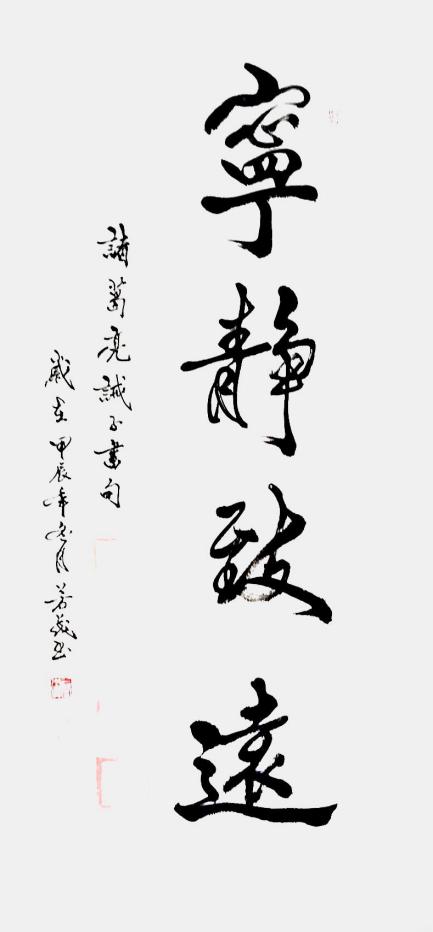 寧靜致遠
諸葛亮誡子書句
歲在甲辰年冬月